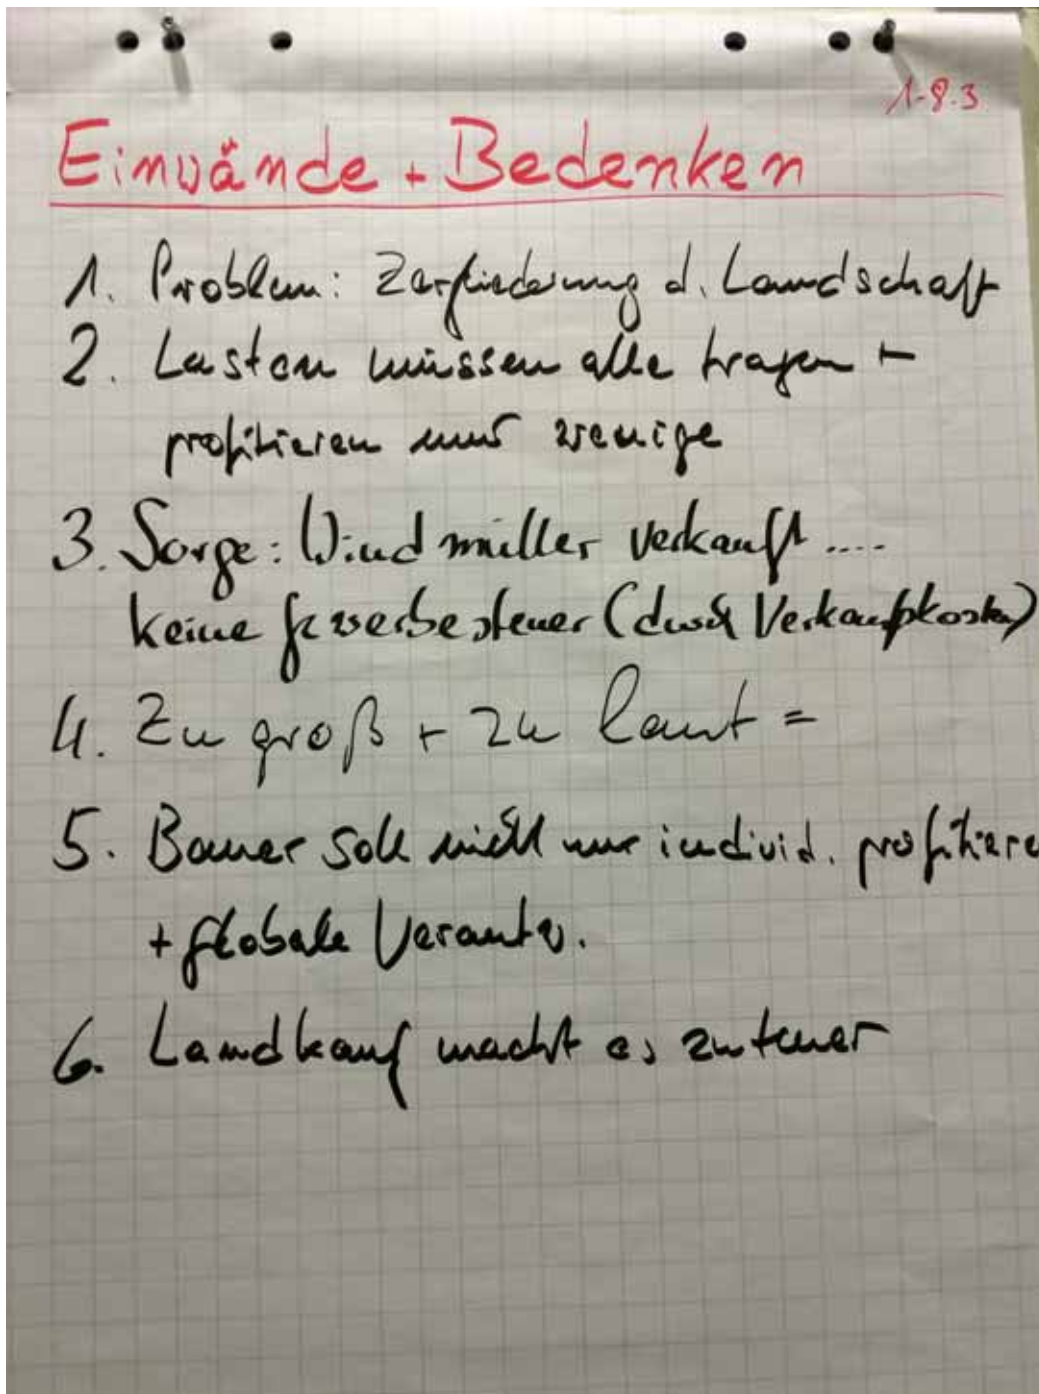 1-8.3
Einwände + Bedenken
1. Problem: Zerfliederung d. Landschaft
2. Lasten müssen alle tragen +
profitieren nur wenige
3. Sorge: Windmüller verkauft ....
keine Gewerbesteuer (durch Verkaufskosten)
4. Zu groß + zu laut =
5. Bauer soll nicht nur individ. profitiere
+ globale Verantw.
6. Landkauf macht es zu teuer